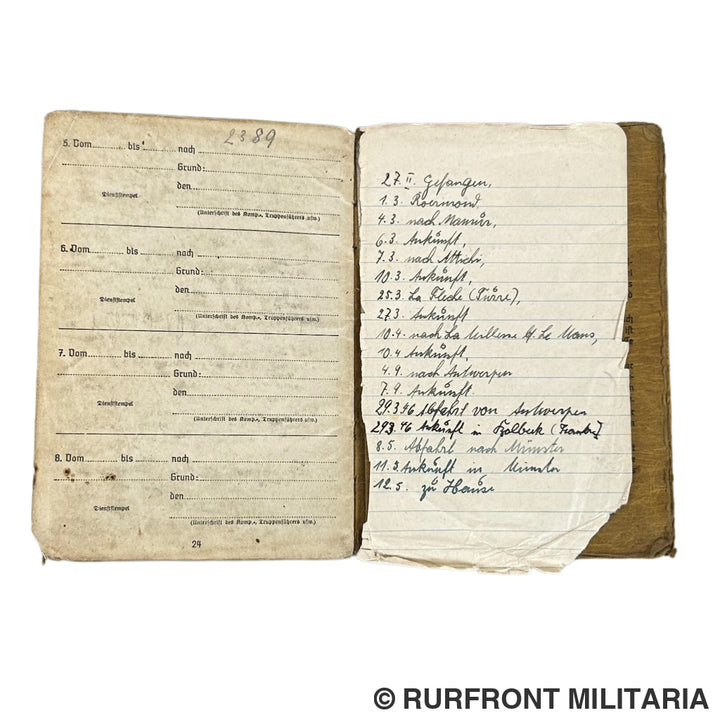 2389
5. Vom........ bis........ nach........
Grund:........
den........
Dienststempel
(Unterschrift des Komp.-, Truppenführers usw.)
6. Vom........ bis........ nach........
Grund:........
den........
Dienststempel
(Unterschrift des Komp.-, Truppenführers usw.)
7. Vom........ bis........ nach........
Grund:........
den........
Dienststempel
(Unterschrift des Komp.-, Truppenführers usw.)
8. Vom........ bis........ nach........
Grund:........
den........
Dienststempel
(Unterschrift des Komp.-, Truppenführers usw.)
24
27. II. Gefangen,
1.3. Roermond
4.3. nach Namür,
6.3. Ankunft,
7.3. nach Attichi,
10.3. Ankunft,
25.3. La Fleche (Türre),
27.3. Ankunft
10.4. nach La Millesse b. Le Mans,
10.4 Ankunft,
4.9. nach Antwerpen
7.9. Ankunft
29.3.46 Abfahrt von Antwerpen
29.3.46 Ankunft in
8.5. Abfahrt nach Münster
11.5. Ankunft in Münster
12.5. zu Hause
© RURFRONT MILITARIA